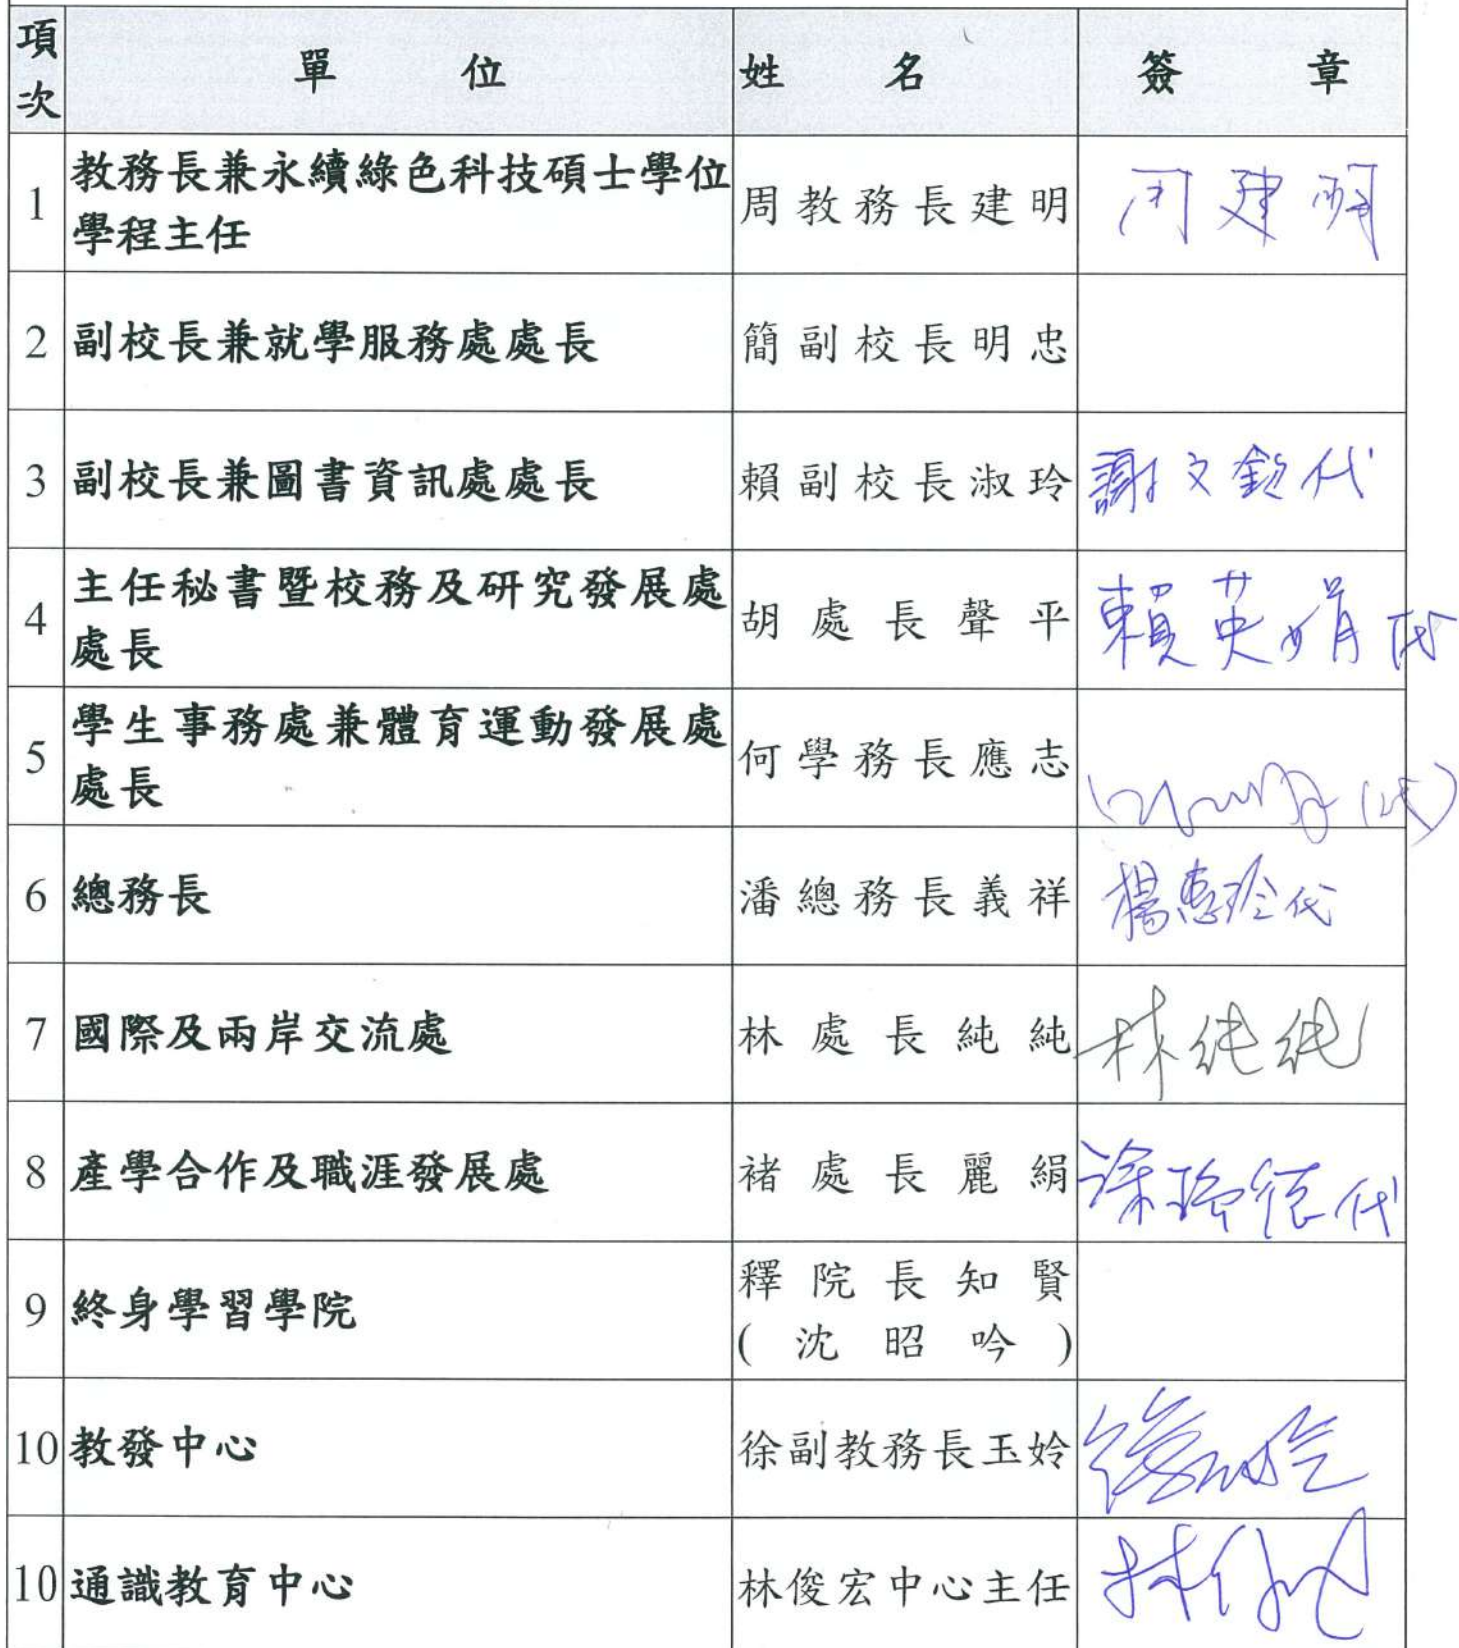 項次 單位 姓名 簽章
1 教務長兼永續綠色科技碩士學位 周教務長建明 周建明
學程主任
2 副校長兼就學服務處處長 簡副校長明忠
3 副校長兼圖書資訊處處長 賴副校長淑玲 謝文欽代
4 主任秘書暨校務及研究發展處 胡處長聲平 賴英娟代
處長
5 學生事務處兼體育運動發展處 何學務長應志 (代)
處長
6 總務長 潘總務長義祥 楊惠玲代
7 國際及兩岸交流處 林處長純純 林純純
8 產學合作及職涯發展處 褚處長麗絹 代
9 終身學習學院 釋院長知賢
(沈昭吟)
10 教發中心 徐副教務長玉姈 徐玉姈
10 通識教育中心 林俊宏中心主任 林俊宏